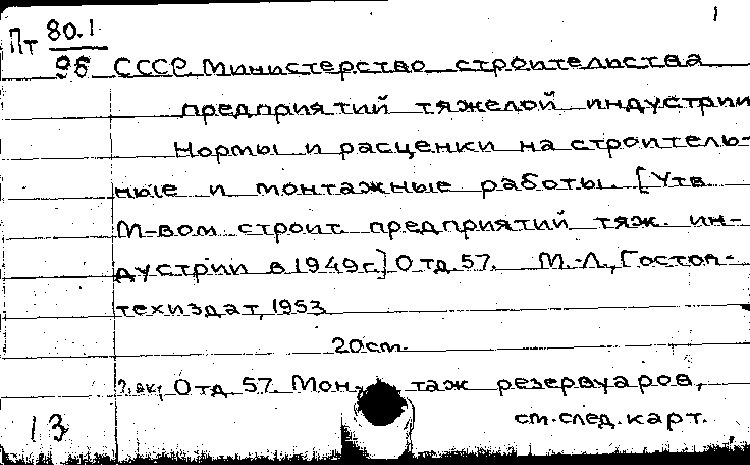 1
Пт 80.1
96 СССР. Министерство строительства
предприятий тяжелой индустрии
Нормы и расценки на строитель-
ные и монтажные работы. [Утв.
М-вом строит. предприятий тяж. ин-
дустрии в 1949г.] Отд.57. М.-Л., Гостоп-
техиздат, 1953
20см.
Отд. 57. Мон- таж резервуаров,
см.след.карт.
13